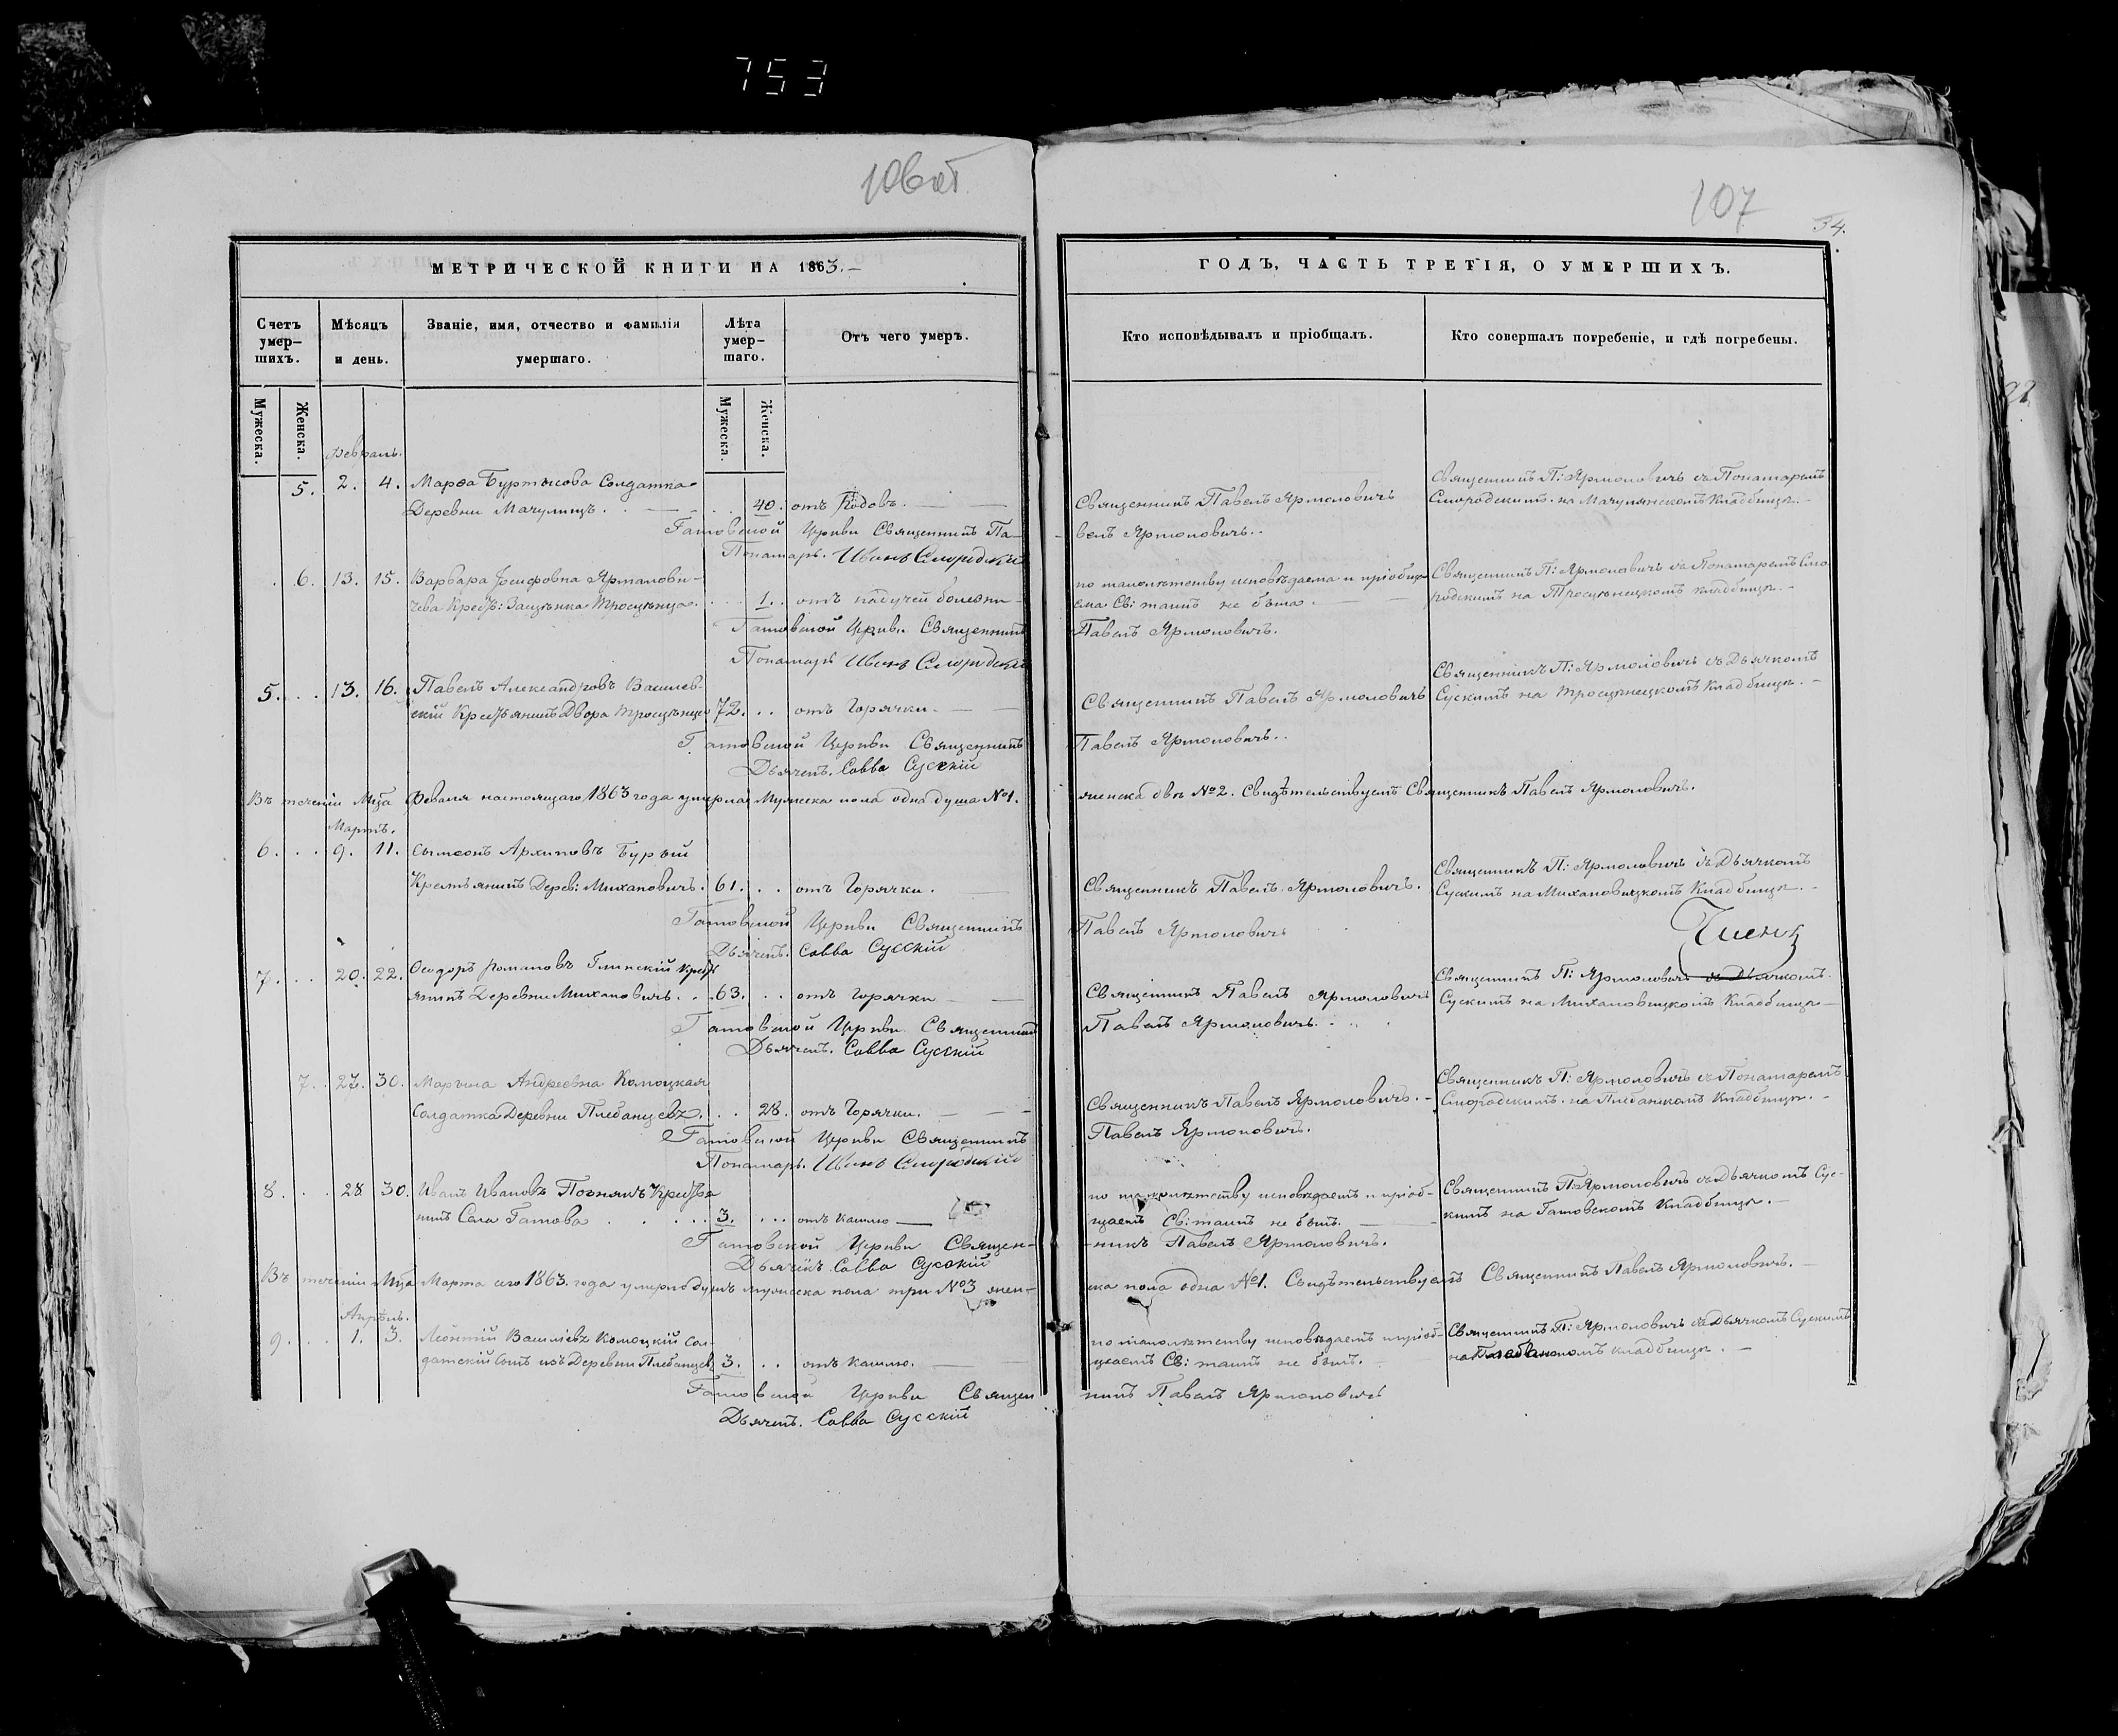 753
106об
107
34.
МЕТРИЧЕСКОЙ КНИГИ НА 1863.-
ГОДЪ, ЧАСТЬ ТРЕТІЯ, О УМЕРШИХЪ.
Счетъ умер-шихъ.
Мѣсяцъ и день.
Званіе, имя, отчество и фамилія умершаго.
Лѣта умер-шаго.
Отъ чего умеръ.
Кто исповѣдывалъ и пріобщалъ.
Кто совершалъ погребеніе, и гдѣ погребены.
Мужеска.
Женска.
Мужеска.
Женска.
Февраль.
5. 2. 4. Марѳа Буртысова Солдатка
Деревни Мачулищъ. 40. отъ Родовъ.
Священникъ Павелъ Ярмоловичъ
Священникъ П: Ярмоловичъ съ Понамаремъ
Смородскимъ. на Мачулянскомъ Кладбищѣ.
Гатовской Церкви Священникъ Па-
велъ Ярмоловичъ.
Понамарь. Иванъ Смородскій
6. 13. 15. Варвара Іосифовна Ярмолови-
чева Крест: Засцѣнка Тросцѣнца. 1. отъ падучей болезни
по малолѣтству исповѣдаема и пріобща-
ема Св: таинъ не была.
Священникъ П: Ярмоловичъ съ Понамаремъ Смо-
родскимъ на Тросцѣнецкомъ кладбищѣ.
Гатовской Церкви Священникъ
Павелъ Ярмоловичъ.
Понамарь Иванъ Смородскій
5. 13. 16. Павелъ Александровъ Василев-
скій Крестьянинъ Двора Тросцѣнца 72. отъ Горячки.
Священникъ Павелъ Ярмоловичъ
Священникъ П: Ярмоловичъ съ Дьячкомъ
Сускимъ на Тросцѣнецкомъ Кладбищѣ.
Гатовской Церкви Священникъ
Павелъ Ярмоловичъ.
Дьячекъ. Савва Сусскій
Въ теченіи Мца Феваля настоящаго 1863 года умерла Мужеска пола одна душа №1.
женска двѣ №2. Свидѣтельствуемъ Священникъ Павелъ Ярмоловичъ.
Мартъ.
6. 9. 11. Сымеонъ Архиповъ Бурый
Крестьянинъ Дерев: Михановичъ. 61. отъ Горячки.
Священникъ Павелъ Ярмоловичъ.
Священникъ П: Ярмоловичъ съ Дьячкомъ
Сускимъ на Михановицкомъ Кладбищѣ.
Гатовской Церкви Священникъ
Павелъ Ярмоловичъ
Дьячекъ. Савва Сусскій
Членъ
7. 20. 22. Ѳеодоръ Романовъ Глинскій Крест-
янинъ Деревни Михановичъ. 63. отъ горячки
Священникъ Павелъ Ярмоловичъ
Священникъ П: Ярмоловичъ съ Дьячкомъ
Сускимъ на Михановицкомъ Кладбищѣ
Гатовской Церкви Священникъ
Павелъ Ярмоловичъ.
Дьячекъ. Савва Сусскій
7. 27. 30. Марьяа Андреевна Комоцкая
Солдатка Деревни Плебанцевъ. 28. отъ Горячки.
Священникъ Павелъ Ярмоловичъ.
Священникъ П: Ярмоловичъ съ Понамаремъ
Смородскимъ. на Плебанскомъ Кладбищѣ.
Гатовской Церкви Священникъ
Павелъ Ярмоловичъ.
Понамарь. Иванъ Смородскій
8. 28 30. Иванъ Ивановъ Познякъ Крестья
нинъ Села Гатова 3. отъ кашлю
по малолѣтству исповѣдаемъ и пріоб-
щаемъ Св: таинъ не былъ.
Священникъ П: Ярмоловичъ съ Дьячкомъ Сус-
кимъ на Гатовскомъ Кладбищѣ.
Гатовской Церкви Священ-
никъ Павелъ Ярмоловичъ.
Дьячекъ Савва Сусскій
Въ теченіи Мца Марта сего 1863. года умерло душъ мужеска пола три №3 жен-
ска пола одна №1. Свидѣтельствуемъ Священникъ Павелъ Ярмоловичъ.
Апрѣль.
9. 1. 3. Леонтій Василіевъ Комоцкій Сол-
датскій сынъ изъ Деревни Плебанцевъ 3. отъ кашлю.
по малолѣтству исповѣдаемъ и пріоб-
щаемъ Св: таинъ не былъ.
Священникъ П: Ярмоловичъ съ Дьячкомъ Сускимъ
на кладбищѣ.
Гатовской Церкви Священ
никъ Павелъ Ярмоловичъ
Дьячекъ. Савва Сусскій